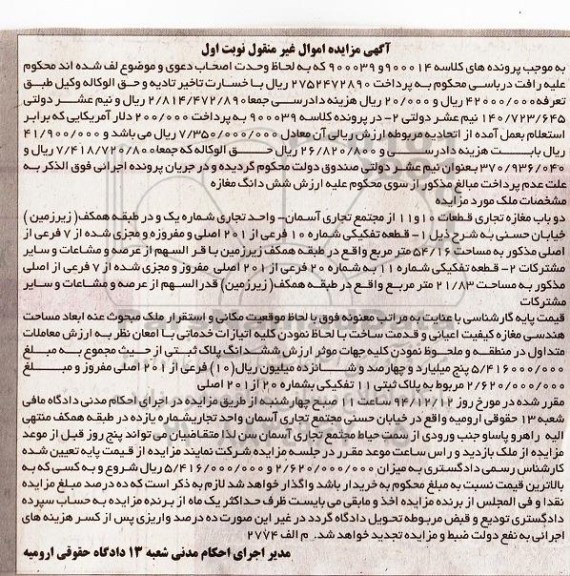 آگهی مزایده اموال غیر منقول نوبت اول
به موجب پرونده های کلاسه ۹۰۰۰۱۴ و ۹۰۰۰۳۹ که به لحاظ وحدت اصحاب دعوی و موضوع لف شده اند محکوم
علیه رافت درباسی محکوم به پرداخت ۲۷۵۲۴۷۲۸۹۰ ریال با خسارت تاخیر تادیه و حق الوکاله وکیل طبق
تعرفه ۴۲۰۰۰/۰۰۰ ریال و ۲۰/۰۰۰ ریال هزینه دادرسی جمعا ۲/۸۱۴/۴۷۲/۸۹۰ ریال و نیم عشر دولتی
۱۴۰/۷۲۳/۶۴۵ نیم عشر دولتی ۲- در پرونده کلاسه ۹۰۰۰۳۹ به پرداخت ۲۰۰/۰۰۰ دلار آمریکایی که برابر
استعلام بعمل آمده از اتحادیه مربوطه ارزش ریالی آن معادل ۷/۳۵۰/۰۰۰/۰۰۰ ریال می باشد و ۴۱/۹۰۰/۰۰۰
ریال بابت هزینه دادرسی و ۲۶/۸۲۰/۸۰۰ ریال حق الوکاله که جمعا ۷/۴۱۸/۷۲۰/۸۰۰ ریال و
۳۷۰/۹۳۶/۰۴۰ بعنوان نیم عشر دولتی صندوق دولت محکوم گردیده و در جریان پرونده اجرائی فوق الذکر به
علت عدم پرداخت مبالغ مذکور از سوی محکوم علیه ارزش شش دانگ مغازه
مشخصات ملک مورد مزایده
دو باب مغازه تجاری قطعات ۱۰ و ۱۱ از مجتمع تجاری آسمان- واحد تجاری شماره یک و در طبقه همکف( زیرزمین )
خیابان حسنی به شرح ذیل ۱- قطعه تفکیکی شماره ۱۰ فرعی از ۲۰۱ اصلی و مفروزه و مجزی شده از ۷ فرعی از
اصلی مذکور به مساحت ۵۴/۱۶ متر مربع واقع در طبقه همکف زیرزمین با قر السهم از عرصه و مشاعات و سایر
مشترکات ۲- قطعه تفکیکی شماره ۱۱ به شماره ۲۰ فرعی از ۲۰۱ اصلی مفروز و مجزی شده از ۷ فرعی از اصلی
مذکور به مساحت ۲۱/۸۳ متر مربع واقع در طبقه همکف( زیرزمین) قدر السهم از عرصه و مشاعات و سایر
مشترکات
قیمت پایه کارشناسی با عنایت به مراتب معنونه فوق با لحاظ موقعیت مکانی و استقرار ملک مبحوث عنه ابعاد مساحت
هندسی مغازه کیفیت اعیانی و قدمت ساخت با لحاظ نمودن کلیه اتیازات خدماتی با امعان نظر به ارزش معاملات
متداول در منطقه و ملحوظ نمودن کلیه جهات موثر ارزش ششدانگ پلاک ثبتی از حیث مجموع به مبلغ
۵/۴۱۶۰۰۰/۰۰۰ پنج میلیارد و چهارصد و شانزده میلیون ریال(۱۰) فرعی از ۲۰۱ اصلی مفروز و مبلغ
۲/۶۲۰/۰۰۰/۰۰۰ مربوط به پلاک ثبتی ۱۱ تفکیکی بشماره ۲۰ از ۲۰۱ اصلی
مقرر شده در مورخ روز ۹۴/۱۲/۱۲ ساعت ۱۱ صبح چهارشنبه از طریق مزایده در اجرای احکام مدنی دادگاه مافی
شعبه ۱۳ حقوقی ارومیه واقع در خیابان حسنی مجتمع تجاری آسمان واحد تجاریشماره یازده در طبقه همکف منتهی
الیه راهرو پاساو جنب ورودی از سمت حیاط مجتمع تجاری آسمان سن لذا متقاضیان می تواند پنج روز قبل از موعد
مزایده از ملک بازدید و راس ساعت موعد مقرر در جلسه مزایده شرکت نمایند مزایده از قیمت پایه تعیین شده
کارشناس رسمی دادگستری به میزان ۲/۶۲۰/۰۰۰/۰۰۰ و ۵/۴۱۶/۰۰۰/۰۰۰ ریال شروع و به کسی که به
بالاترین قیمت نسبت به مبلغ محکوم به خریدار باشد واگذار خواهد شد لازم به ذکر است که ده درصد مبلغ مزایده
نقدا و فی المجلس از برنده مزایده اخذ و مابقی می بایست ظرف حداکثر یک ماه از برنده مزایده به حساب سپرده
دادگستری تودیع و قبض مربوطه تحویل دادگاه گردد در غیر این صورت ده درصد واریزی پس از کسر هزینه های
اجرائی به نفع دولت ضبط و مزایده تجدید خواهد شد. م الف ۲۷۷۴
مدیر اجرای احکام مدنی شعبه ۱۳ دادگاه حقوقی ارومیه